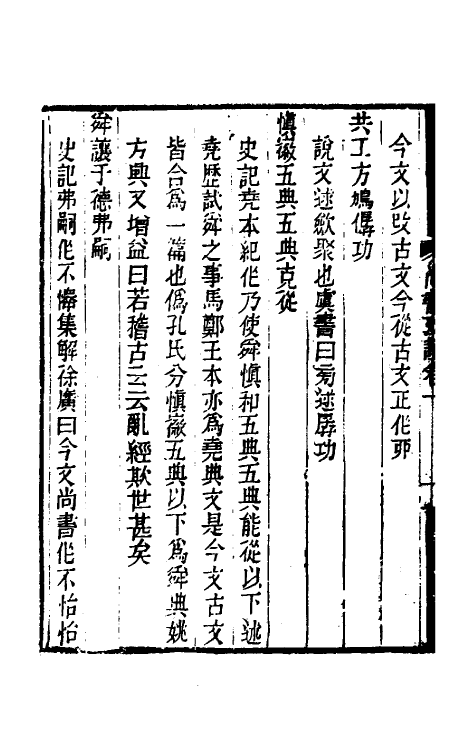 今文以改古文今從古文正作丣
共工方鳩僝功
說文逑斂聚也虞書曰㫄逑孱功
慎徽五典五典克從
史記堯本紀作乃使舜慎和五典五典能從以下述
堯歷試舜之事馬鄭王本亦爲堯典文是今文古文
皆合爲一篇也僞孔氏分慎徽五典以下爲舜典姚
方興又增益曰若稽古云云亂經欺世甚矣
舜讓于德弗嗣
史記弗嗣作不懌集解徐廣曰今文尚書作不怡怡